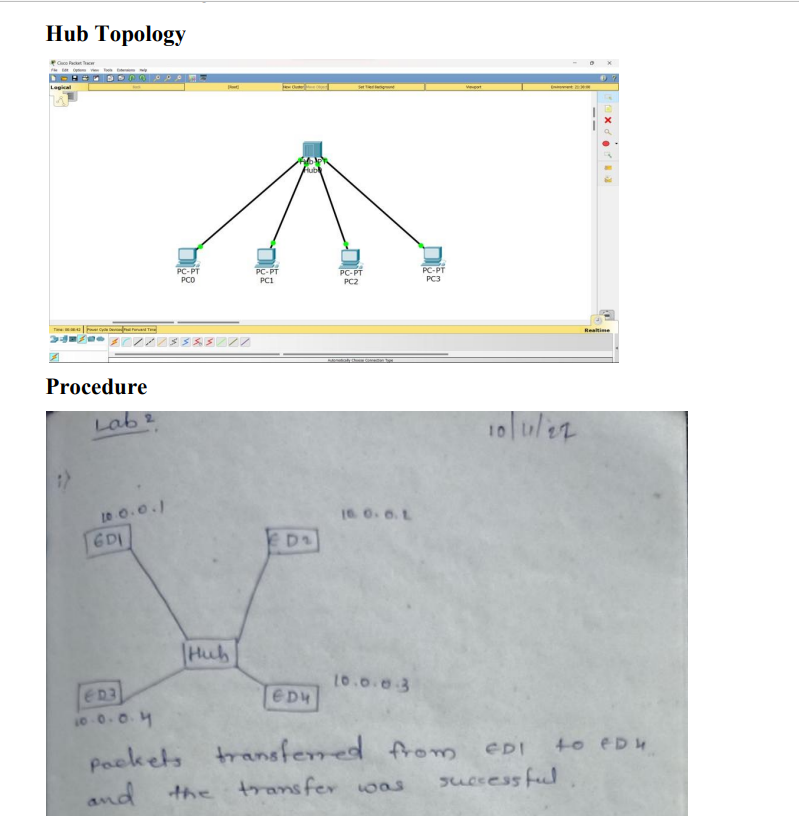 Hub Topology
Cisco Packet Tracer
File Edit Options View Tools Extensions Help
Logical [Root] New Cluster Set Tiled Background Viewport
Hub-PT
Hub0
PC-PT PC-PT PC-PT PC-PT
PC0 PC1 PC2 PC3
Power Cycle Devices Fast Forward Time Realtime
Automatically Choose Connection Type
Procedure
Lab 2.
i)
10.0.0.1
ED1 ED2
Hub
ED3 ED4 10.0.0.3
10.0.0.4
packets transferred from ED1 to ED4
and the transfer was successful.